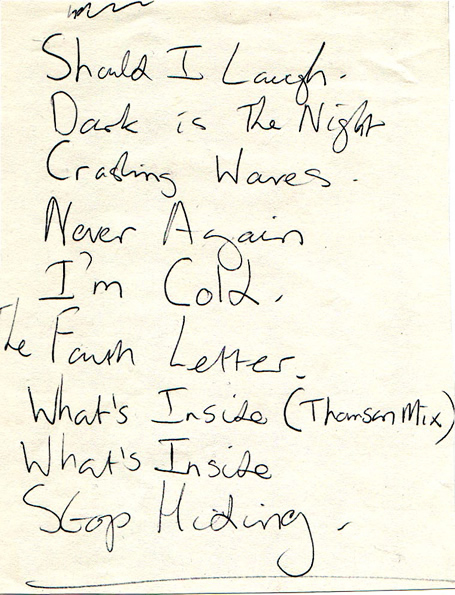 Should I Laugh.
Dark is The Night
Crashing Waves.
Never Again
I'm Cold.
The Fourth Letter.
What's Inside (Thomson Mix)
What's Inside
Stop Hiding.